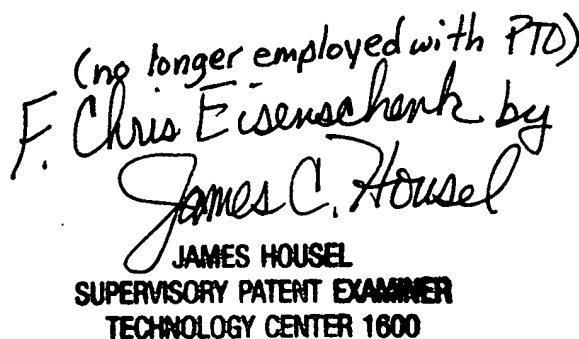 (no longer employed with PTO)
F. Chris Eisenschenk by
James C. Housel
JAMES HOUSEL
SUPERVISORY PATENT EXAMINER
TECHNOLOGY CENTER 1600